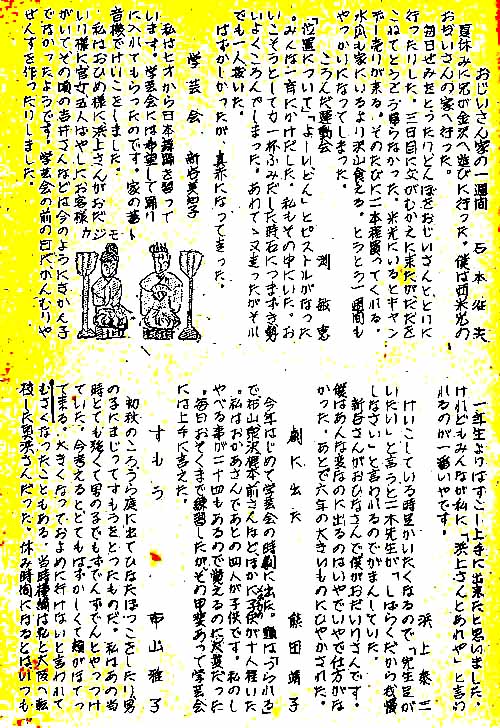 おじいさん家の一週間　石本征夫
夏休みに兄が金沢へ遊びに行った。僕は西米光の
おじいさんの家へ行った。
毎日せみをとったりとんぼをおじいさんととりに
行ったりした。三日目に父がむかえに来たがだだを
こねてとうとう帰らなかった。米光にいるとキャン
デー売りが来る。そのたびに二本程買ってくれる。
水瓜も家にいるより沢山食える。とうとう一週間も
やっかいになってしまった。
ころんだ運動会　渕敏恵
「位置について」「よーいどん」とピストルがなった
。みんな一斉にかけだした。私もその中にいた。お
いこそうとして力一杯ふみだした時石につまずき勢
いよくころんでしまった。あわてて又走ったがそれ
でも一人抜いた。
はずかしかったが、真赤になって走った。
学芸会　新谷美知子
私は七才から日本舞踊を習って
います。学芸会には希望して踊り
に入れてもらったのです。家の蓄
音機でけいこをしました。
私はおひめ様に浜上さんがおだ
いり様に官女五人ばやしにお客様
がいてその頃の吉井さんなどは今のように
でなかったようです。学芸会の前の日にかんむりや
せんすを作ったりしました。
一年生よりはすこし上手に出来たと思いました。
けれどもみんなが私に、「浜上さんとあれや」と言わ
れるのが一番いやです。
浜上泰三
けいこしている時足がいたくなるので「先生足が
いたい」と言うと二木先生が「しばらくだから我慢
しなさい」と言われるのでがまんしていた。
新谷さんがおひなさんで僕がおだいりさんです。
僕はあんな変なのに出るのはいやでいやで仕方がな
かった。あとで六年の大きいものにひやかされた。
劇に出た　熊田靖子
今年はじめて学芸会の時劇に出た。題は
で杉山宗沢僕本前さんなどほかに子供が十人程いた
。私はおかあさんであとの四人が子供です。私のし
ゃべる事が二十四もあるので覚えるのに大変だった
。毎日おそくまで練習したがその甲斐あって学芸会
には上手に言えた。
すもう　市山雅子
初秋のころうら庭に出てひなたぼっこをしたり男
の子にまじってすもうをとったものだ。私はあの当
時とても強くて男の子でもずでんずでんとやっつけ
ていた。今考えるととてもはずかしくて顔がほてっ
て来る。大きくなっておよめに行けないと言われて
むきになったこともある。当時横綱は私と大阪へ転
校した奥浜さんだった。休み時間になるとはいつも